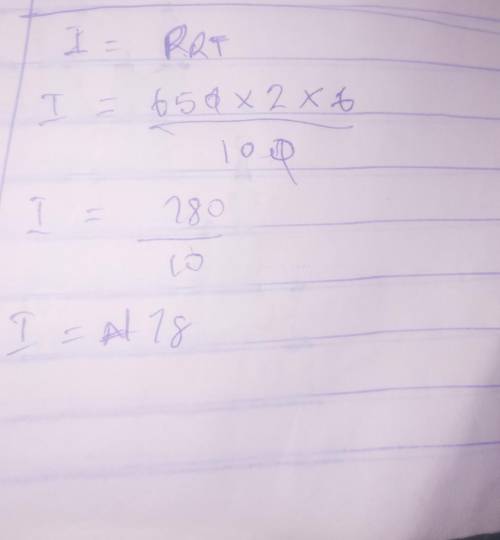 I = PRT
I = 650 × 2 × 6
100
I = 780
10
I = ₦78